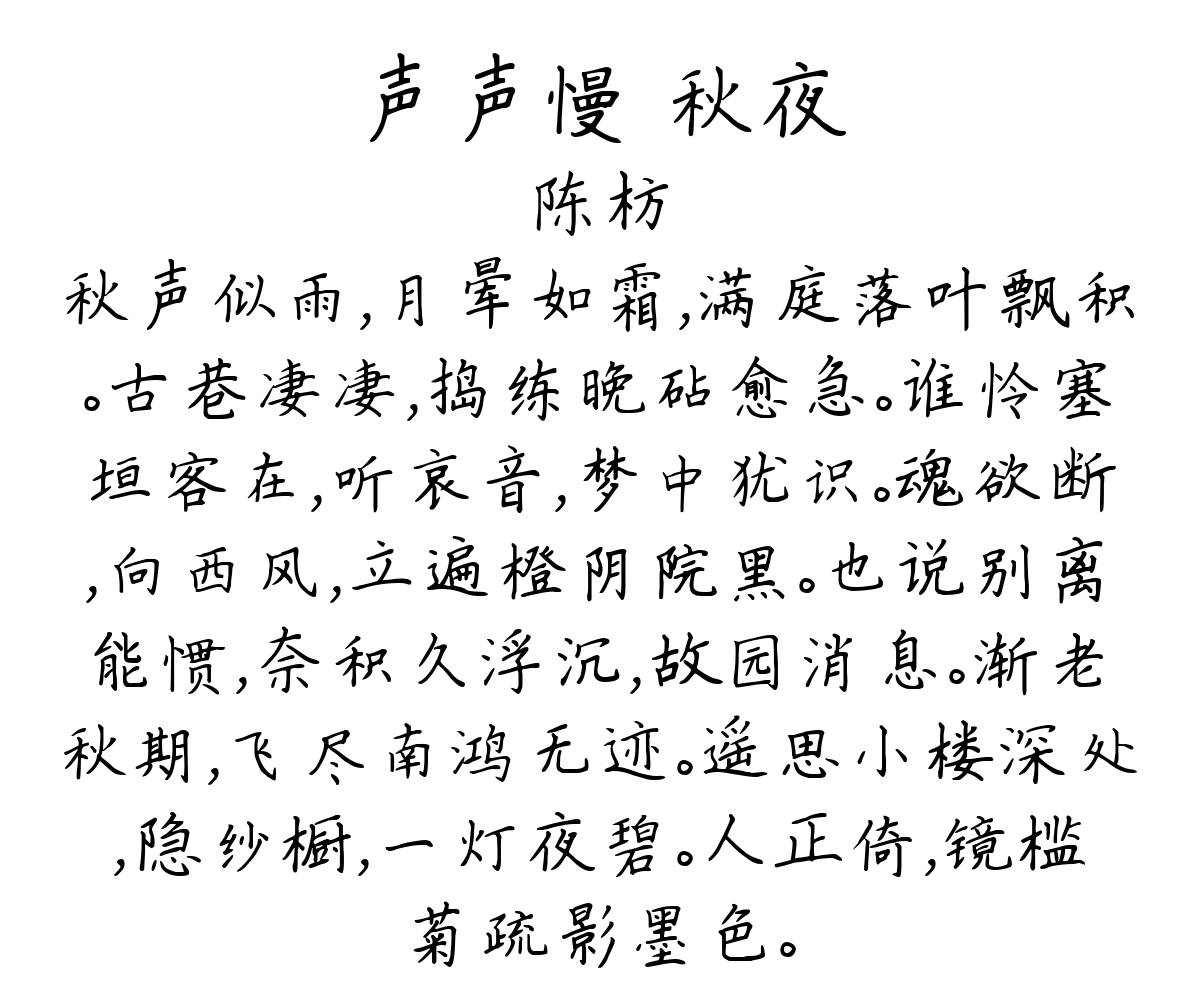 声声慢 秋夜
陈枋
秋声似雨,月晕如霜,满庭落叶飘积
。古巷凄凄,捣练晚砧愈急。谁怜塞
垣客在,听哀音,梦中犹识。魂欲断
,向西风,立遍橙阴院黑。也说别离
能惯,奈积久浮沉,故园消息。渐老
秋期,飞尽南鸿无迹。遥思小楼深处
,隐纱橱,一灯夜碧。人正倚,镜槛
菊疏影墨色。